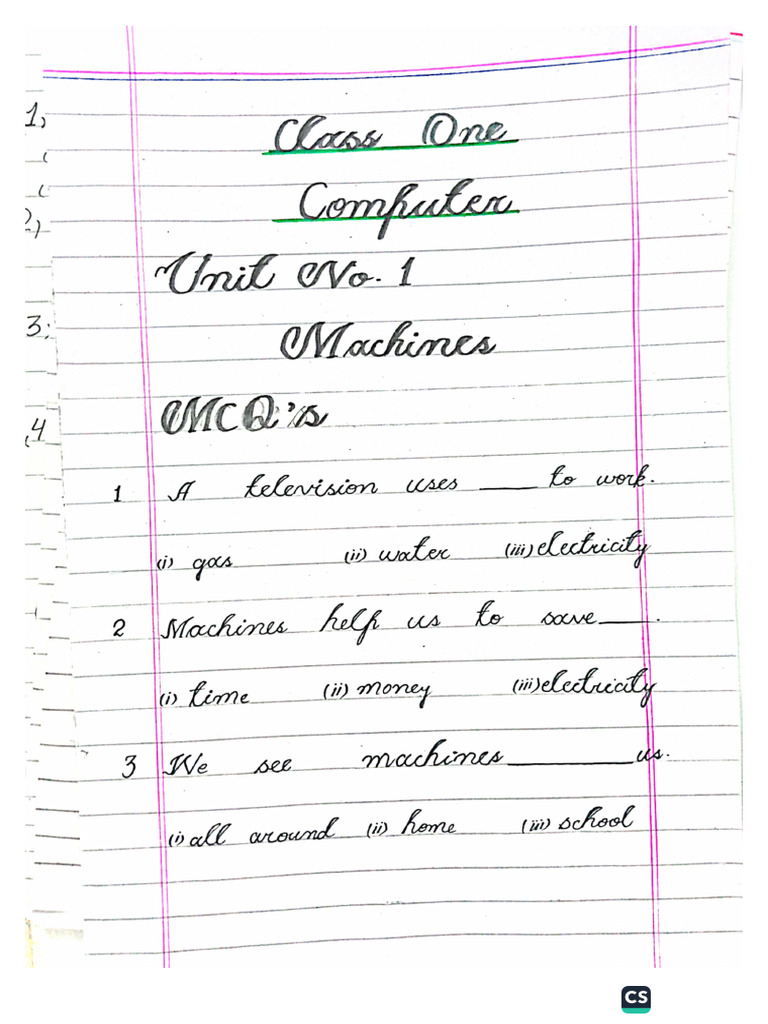 Class One
Computer
Unit No. 1
Machines
MCQ's
1 A television uses ____ to work.
(i) gas (ii) water (iii) electricity
2 Machines help us to save ____.
(i) time (ii) money (iii) electricity
3 We see machines __________ us.
(i) all around (ii) home (iii) school
1,
2,
3;
4
CS